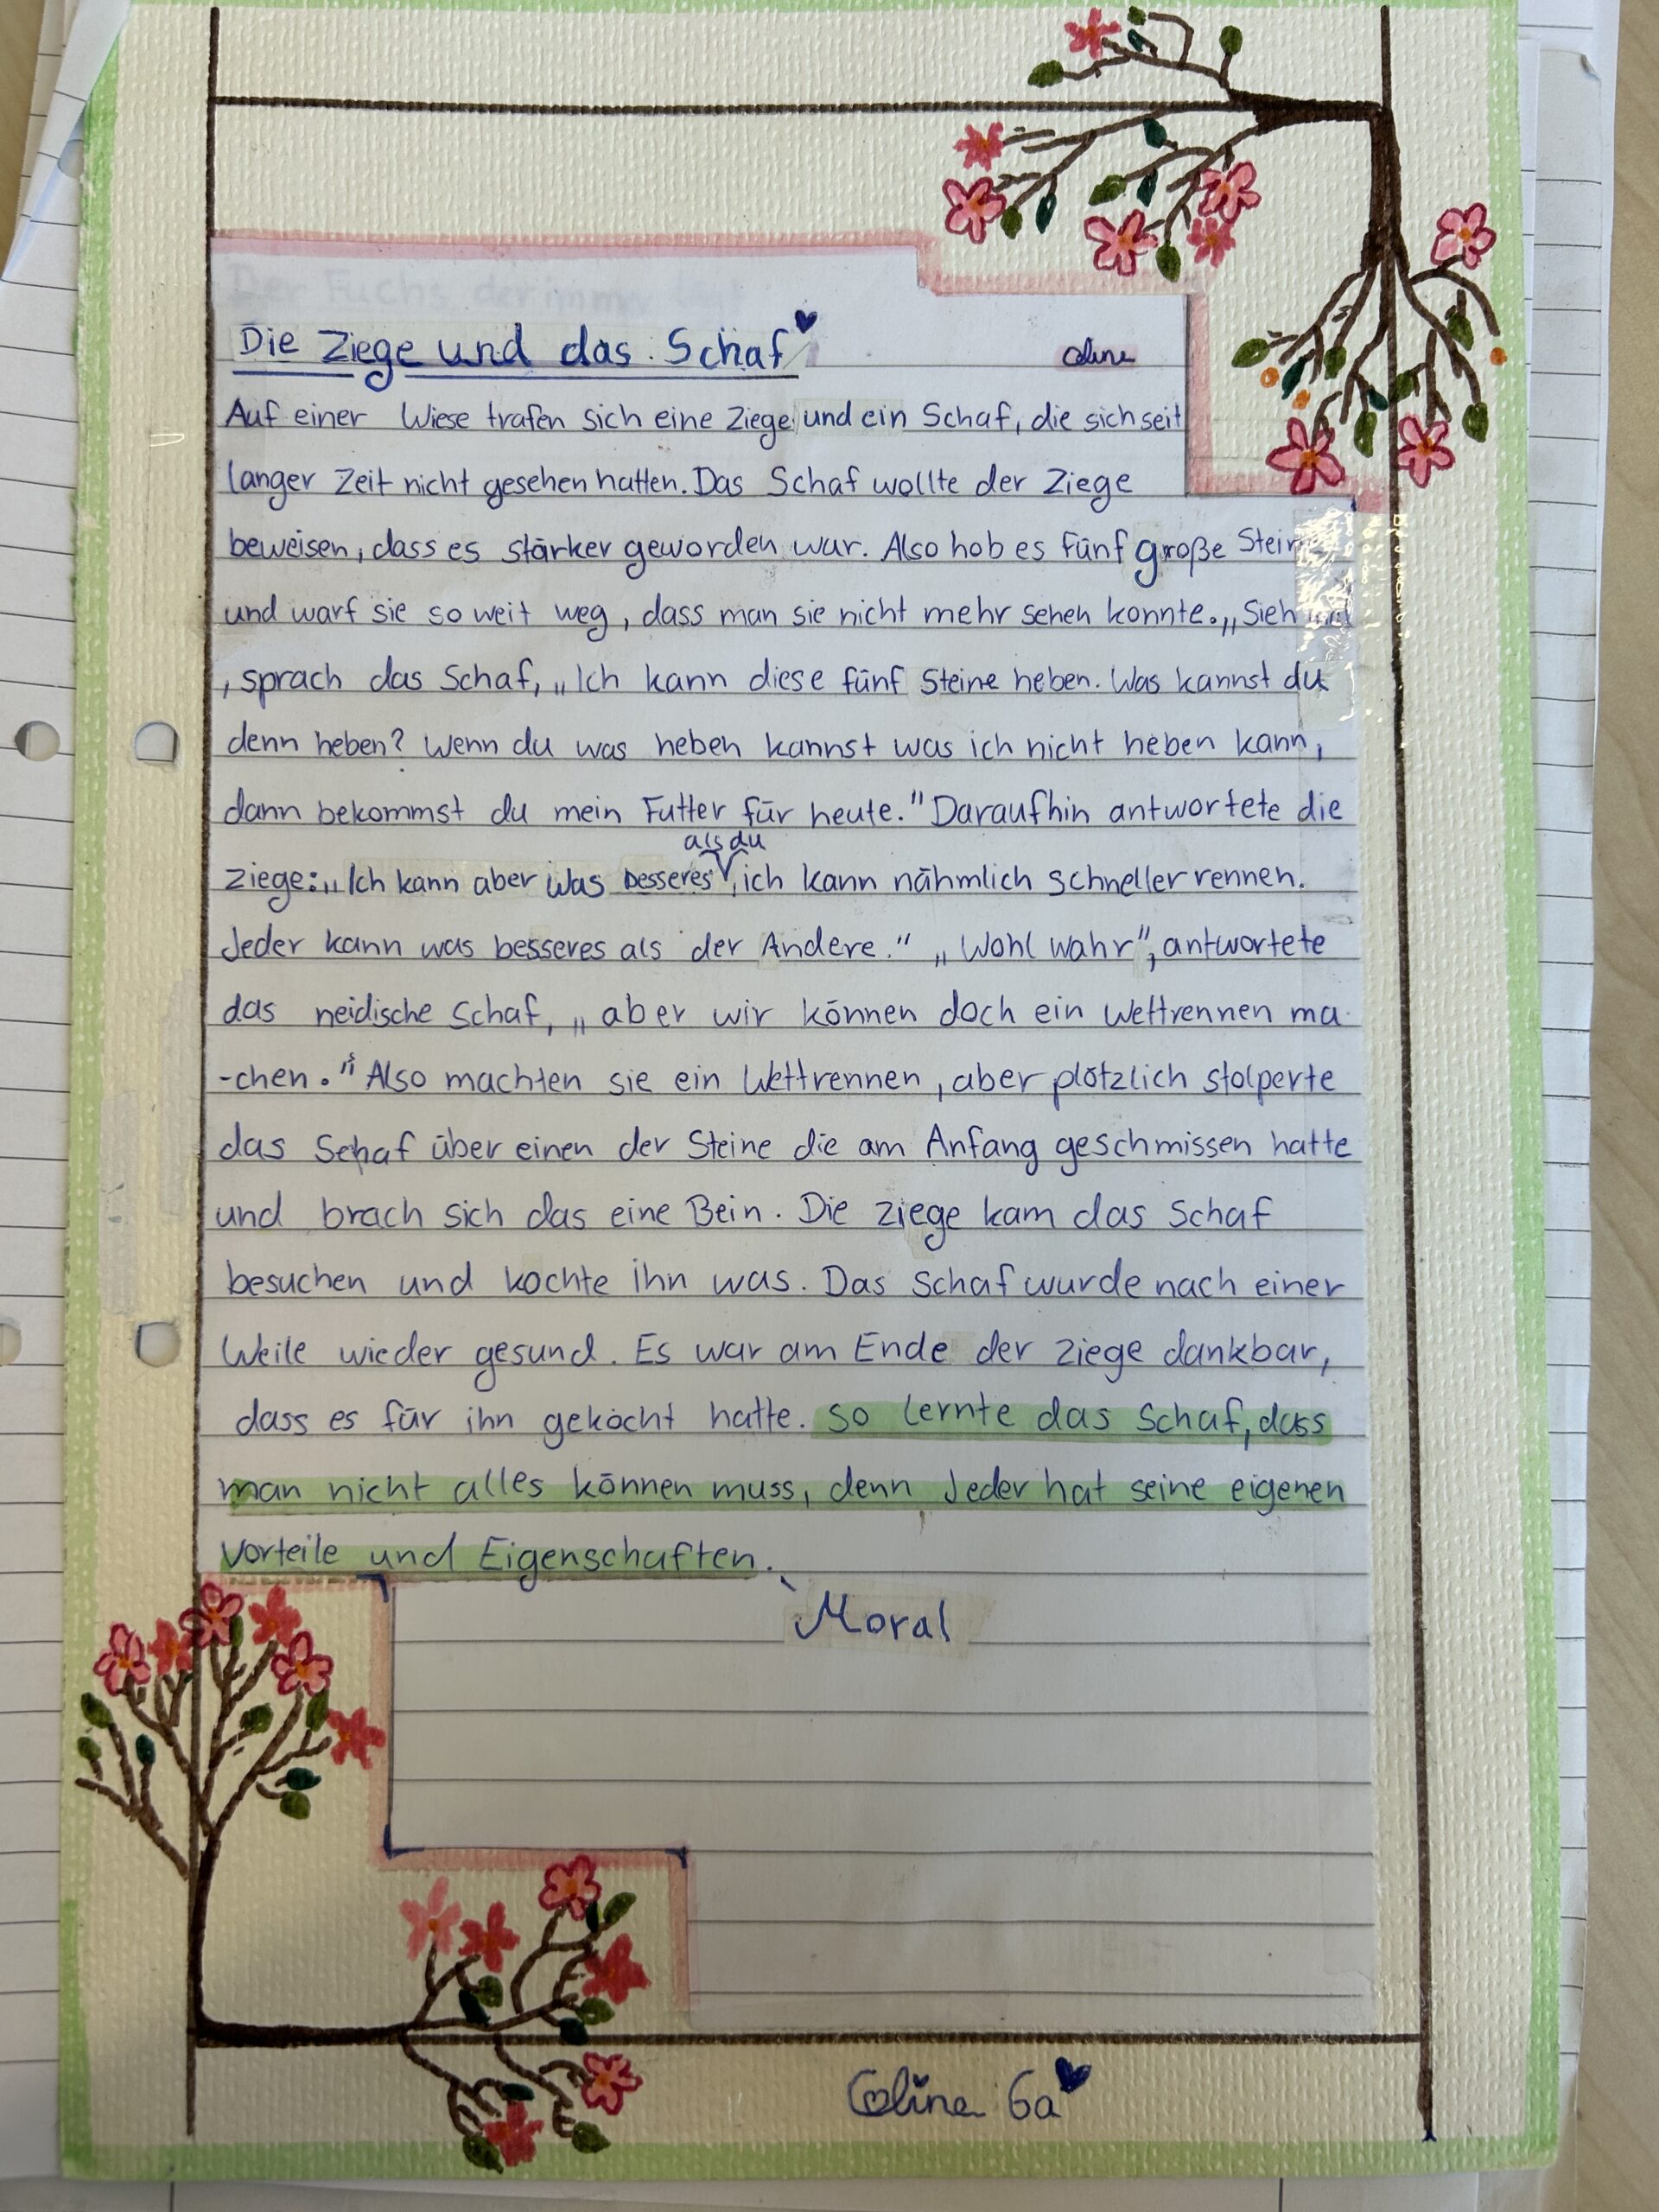 Der Fuchs, der imm
Die Ziege und das Schaf
Coline
Auf einer Wiese trafen sich eine Ziege und ein Schaf, die sich seit
langer Zeit nicht gesehen hatten. Das Schaf wollte der Ziege
beweisen, dass es stärker geworden war. Also hob es fünf große Stein
und warf sie so weit weg, dass man sie nicht mehr sehen konte. „Sieh
, sprach das Schaf, „Ich kann diese fünf Steine heben. Was kannst du
denn heben? Wenn du was heben kannst was ich nicht heben kann,
dann bekommst du mein Futter für heute." Daraufhin antwortete die
als du
Ziege: „Ich kann aber was besseres, ich kann nähmlich schneller rennen.
Jeder kann was besseres als der Andere." „Wohl wahr", antwortete
das neidische Schaf, „aber wir können doch ein Wettrennen ma-
-chen." Also machten sie ein Wettrennen, aber plötzlich stolperte
das Schaf über einen der Steine die am Anfang geschmissen hatte
und brach sich das eine Bein. Die Ziege kam das Schaf
besuchen und kochte ihn was. Das Schaf wurde nach einer
Weile wieder gesund. Es war am Ende der Ziege dankbar,
dass es für ihn gekocht hatte. So lernte das Schaf, dass
man nicht alles können muss, denn Jeder hat seine eigenen
Vorteile und Eigenschaften.
Moral
Coline 6a